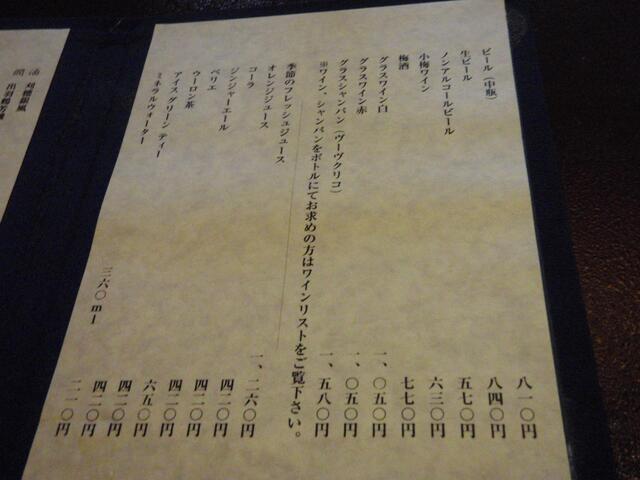 ビール（中瓶） 八一〇円
生ビール 八四〇円
ノンアルコールビール 五七〇円
小梅ワイン 六三〇円
梅酒 七七〇円
グラスワイン白 一、〇五〇円
グラスワイン赤 一、〇五〇円
グラスシャンパン（ヴーヴクリコ） 一、五八〇円
※ワイン、シャンパンをボトルにてお求めの方はワインリストをご覧下さい。
季節のフレッシュジュース 一、二六〇円
オレンジジュース 四二〇円
コーラ 四二〇円
ジンジャーエール 四二〇円
ペリエ 六五〇円
ウーロン茶 四二〇円
アイスグリーンティー 四二〇円
ミネラルウォーター 三六〇ml 二一〇円